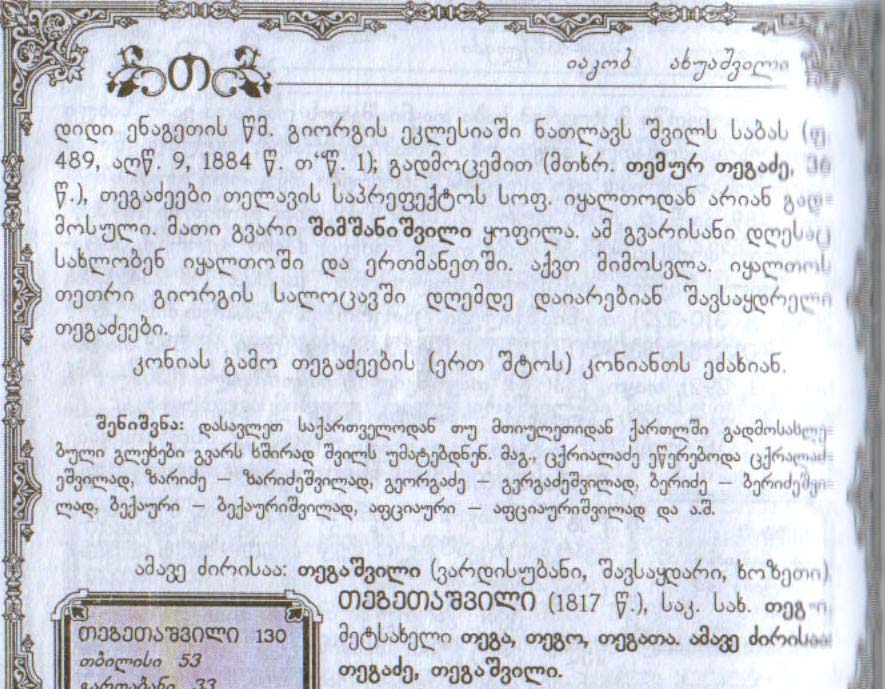 თ
იაკობ ახუაშვილი
დიდი ენაგეთის წმ. გიორგის ეკლესიაში ნათლავს შვილს საბას (ფ.
489, აღწ. 9, 1884 წ. თ“წ. 1); გადმოცემით (მთხრ. თემურ თეგაძე, 36
წ.), თეგაძეები თელავის საპრეფექტოს სოფ. იყალთოდან არიან გად-
მოსული. მათი გვარი შიმშანიშვილი ყოფილა. ამ გვარისანი დღესაც
სახლობენ იყალთოში და ერთმანეთში. აქვთ მიმოსვლა. იყალთოს
თეთრი გიორგის სალოცავში დღემდე დაიარებიან შავსაყდრელი
თეგაძეები.
კონიას გამო თეგაძეების (ერთ შტოს) კონიანთს ეძახიან.
შენიშვნა: დასავლეთ საქართველოდან თუ მთიულეთიდან ქართლში გადმოსახლე-
ბული გლეხები გვარს ხშირად შვილს უმატებდნენ. მაგ., ცქრიალაძე ეწერებოდა ცქრიალაძ-
ეშვილად, ზარიძე – ზარიძეშვილად, გეორგაძე – გერგაძეშვილად, ბერიძე – ბერიძეშვი-
ლად, ბექაური – ბექაურიშვილად, აფციაური – აფციაურიშვილად და ა.შ.
ამავე ძირისაა: თეგაშვილი (ვარდისუბანი, შავსაყდარი, ხოზეთი)
თეგეთაშვილი (1817 წ.), საკ. სახ.
მეტსახელი თეგა, თეგო, თეგათა. ამავე ძირისაა:
თეგაძე, თეგაშვილი.
თეგეთაშვილი 130
თბილისი 53
გარდაბანი 33